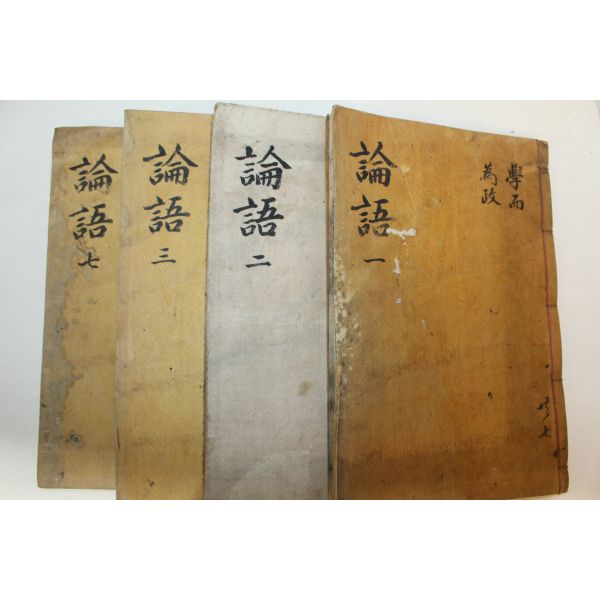 學而
為政
共七
論語一
論語二
論語三
論語七